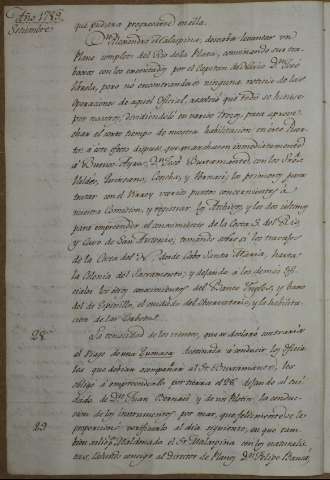 Año 1789
Setiembre
que pudiera proporcionar ella.
Dn. Alexandro Malaspina, deseaba levantar un
Plano completo del Rio de la Plata, convinando sus tra-
bajos con los executados por el Capitan de Navio Dn. José
Varela, pero no encontrandose ninguna noticia de las
Operaciones de aquel Oficial, resolvió que todo se hiciese
por nosotros, dividiendolo en varios trozos, para aprove-
char el corto tiempo de nuestra habilitacion en este Puer-
to: a este efecto dispuso, que marchasen inmediatamente
á Buenos-Ayres Dn. José Bustamante, con los Sres.
Valdés, Quintano, Concha, y Bernaci; los primeros para
tratar con el Virrey varios puntos concernientes á
nuestra Comision, y registrar los Archivos, y los dos ultimos
para emprender el reconocimiento de la Costa S. del Rio,
y Cavo de San Antonio, tomando sobre si los trabajos
de la Costa del N. desde Cabo Santa Maria, hasta
la Colonia del Sacramento; y dejando á los demas ofi-
ciales los otros conocimientos del Banco Ingles, y plano
del de Gorriti, el cuidado del Observatorio, y la habilita-
cion de las Corbetas.
28. La tenacidad de los vientos, que se declaró contraria
al viage de una Zumaca destinada á conducir los oficia-
les que debian acompañar al Sr. Bustamante, les
obligó á emprenderlo por tierra el 28. dejando al cui-
dado de Dn. Juan Bernaci y de un Pilotin, la conduc-
cion de los instrumentos por mar, que felizmente se les
29 proporcionó verificarlo al dia siguiente, en que tam-
bien salió pa. Maldonado el Sr. Malaspina con los naturalis-
tas, llebando consigo al director de Planos Dn. Felipe Bauzá,